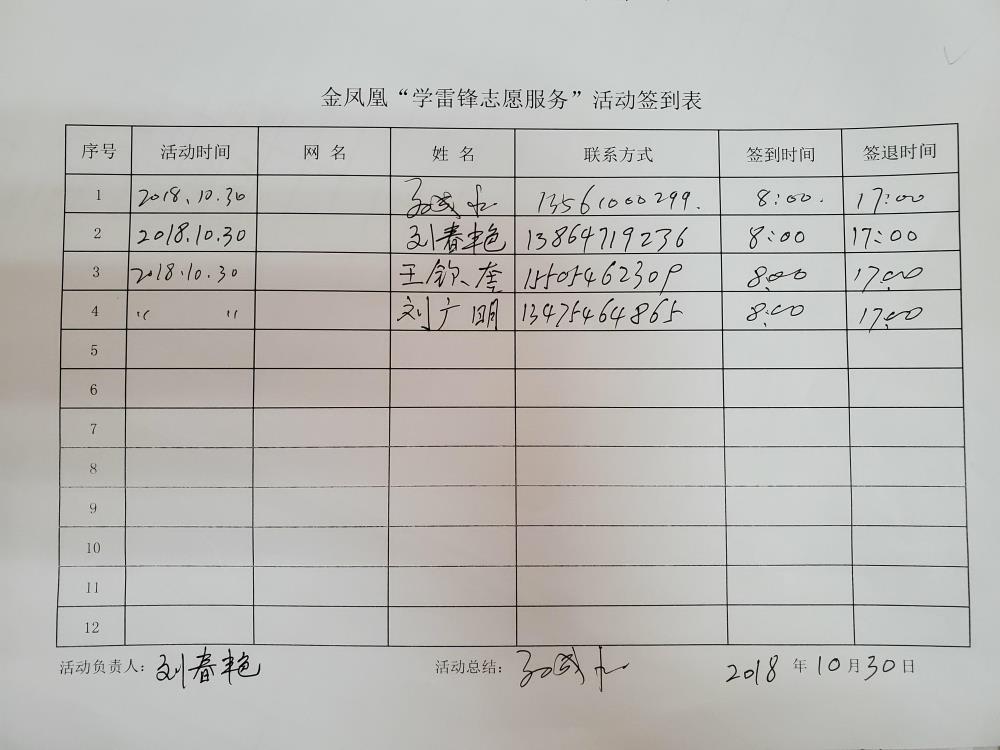 金凤凰“学雷锋志愿服务”活动签到表
序号 活动时间 网 名 姓 名 联系方式 签到时间 签退时间
1 2018、10.30 13561000299. 8:00. 17:00
2 2018.10.30 刘春艳 13864719236 8:00 17:00
3 2018.10.30 王 奎 15505462309 8:00 17:00
4 〃 〃 刘广明 13475464865 8:00 17:00
5
6
7
8
9
10
11
12
活动负责人：刘春艳 活动总结： 2018 年 10 月 30 日